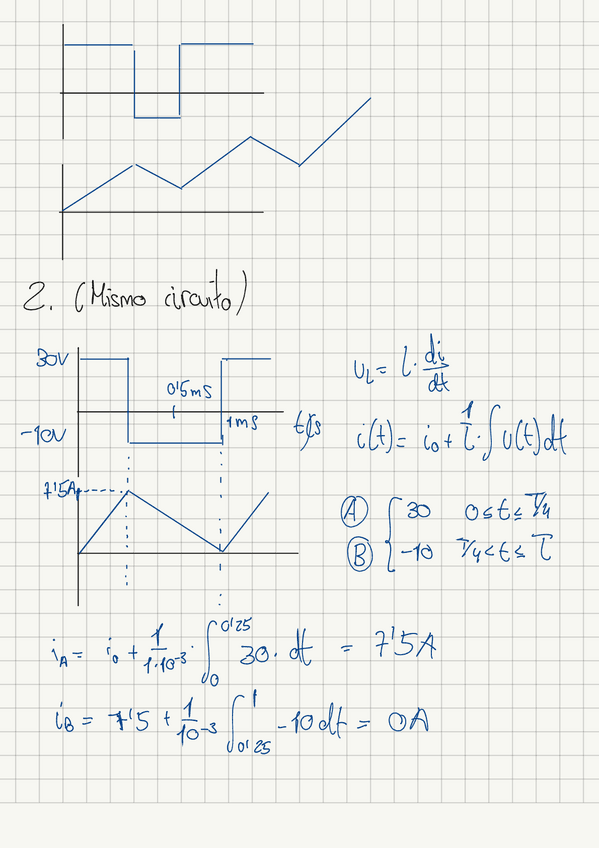 2. (Mismo circuito)
30V
-10V
0'5ms
1ms
t/s
7'5A
U_L = L · di/dt
i(t) = i₀ + 1/L · ∫ u(t) dt
Ⓐ { 30 0 ≤ t ≤ T/4
Ⓑ { -10 T/4 < t ≤ T
i_A = i₀ + 1/1·10⁻³ · ∫₀^0'25 30 · dt = 7'5A
i_B = 7'5 + 1/10⁻³ ∫_0'25^1 -10 dt = 0A